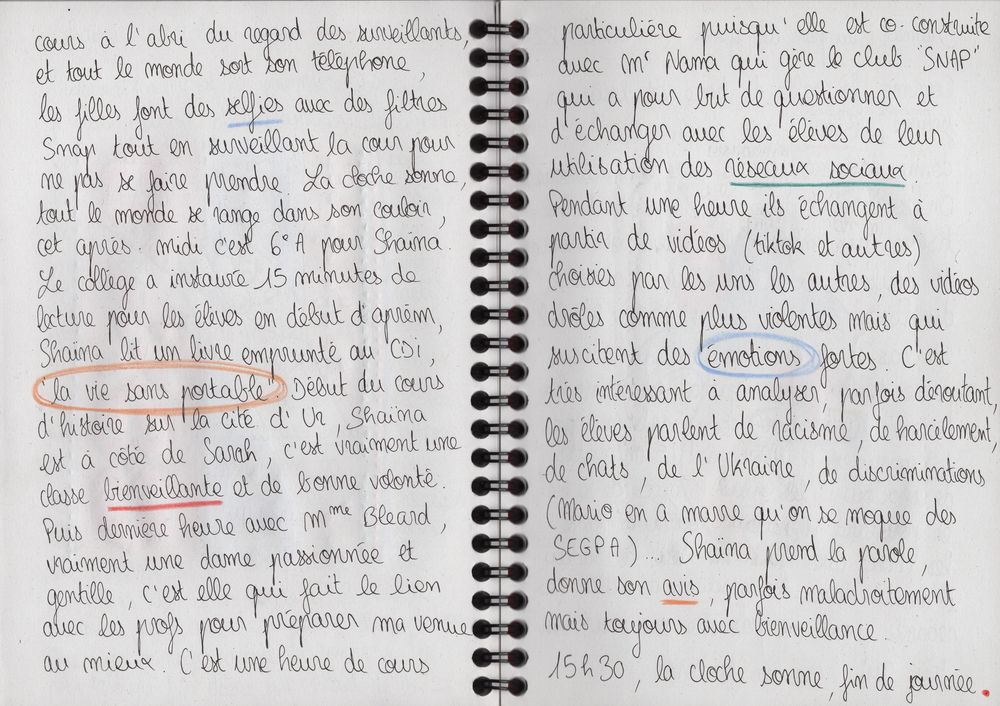 cours à l'abri du regard des surveillants,
et tout le monde sort son téléphone,
les filles font des selfies avec des filtres
Snap tout en surveillant la cour pour
ne pas se faire prendre. La cloche sonne,
tout le monde se range dans son couloir,
cet après-midi c'est 6°A pour Shaïna.
Le collège a instauré 15 minutes de
lecture pour les élèves en début d'aprèm,
Shaïna lit un livre emprunté au CDi,
"la vie sans portable". Début du cours
d'histoire sur la cité d'Ur, Shaïna
est à côté de Sarah, c'est vraiment une
classe bienveillante et de bonne volonté.
Puis dernière heure avec Mme Bleard,
vraiment une dame passionnée et
gentille, c'est elle qui fait le lien
avec les profs pour préparer ma venue
au mieux. C'est une heure de cours
particulière puisqu'elle est co-construite
avec Mr Nama qui gère le club "SNAP"
qui a pour but de questionner et
d'échanger avec les élèves de leur
utilisation des réseaux sociaux.
Pendant une heure ils échangent à
partir de vidéos (tiktok et autres)
choisies par les uns les autres, des vidéos
drôles comme plus violentes mais qui
suscitent des émotions fortes. C'est
très intéressant à analyser, parfois déroutant,
les élèves parlent de racisme, de harcèlement,
de chats, de l'Ukraine, de discriminations
(Mario en a marre qu'on se moque des
SEGPA)... Shaïna prend la parole,
donne son avis, parfois maladroitement
mais toujours avec bienveillance.
15h30, la cloche sonne, fin de journée.